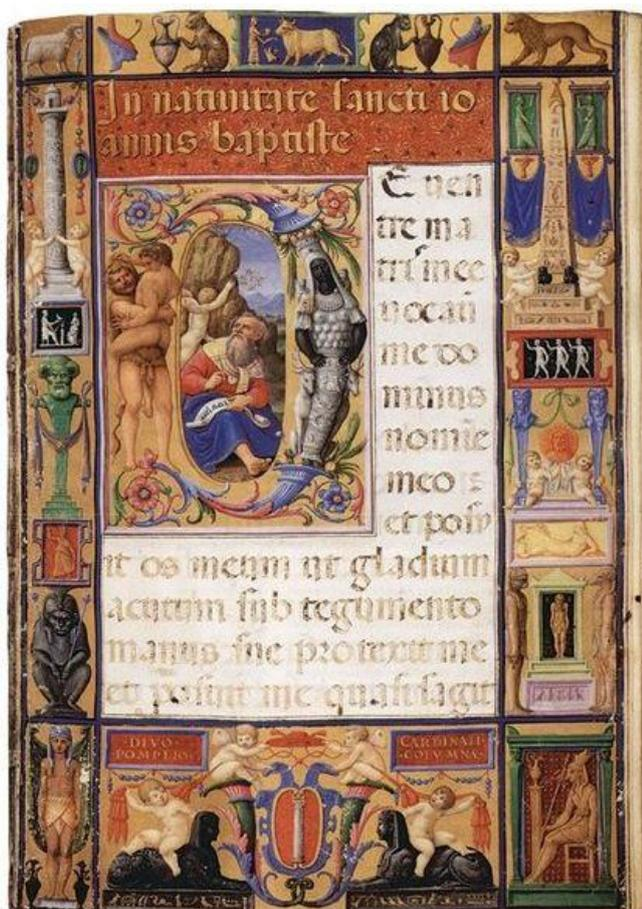 In natiuitate sancti io
annis baptiste
D
E uen
tre ma
tris mee
uocau
me do
minus
nomie
meo
et posu
it os meum ut gladium
acutum sub tegumento
manus sue protexit me
et posuit me quasi sagit
DIVO
POMPEIO
CARDINALI
COLVMNAE